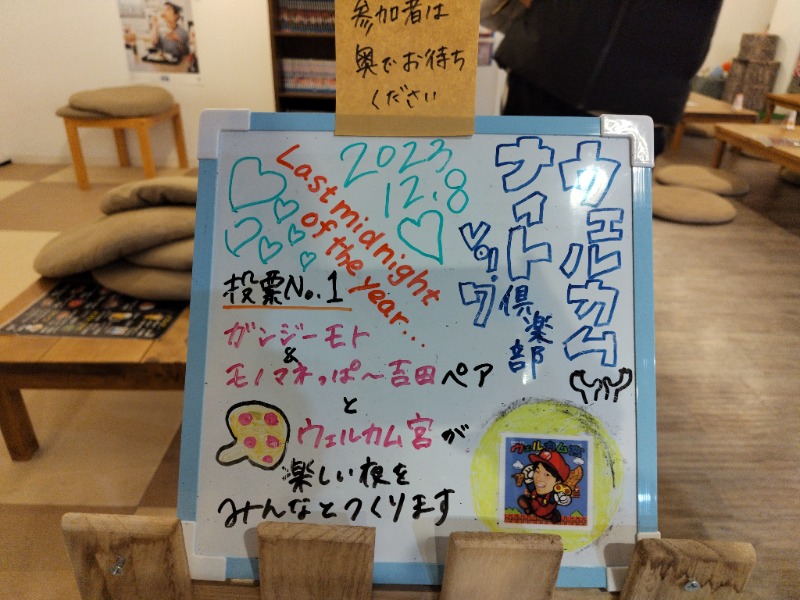 参加者は
奥でお待ち
ください
ウェルカム
ナイト倶楽部
Vol.7
2023
12.8
Last midnight
of the year...
投票No.1
ガンジーモト
&
モノマネっぱ〜吉田ペア
と
ウェルカム宮が
楽しい夜を
みんなとつくります